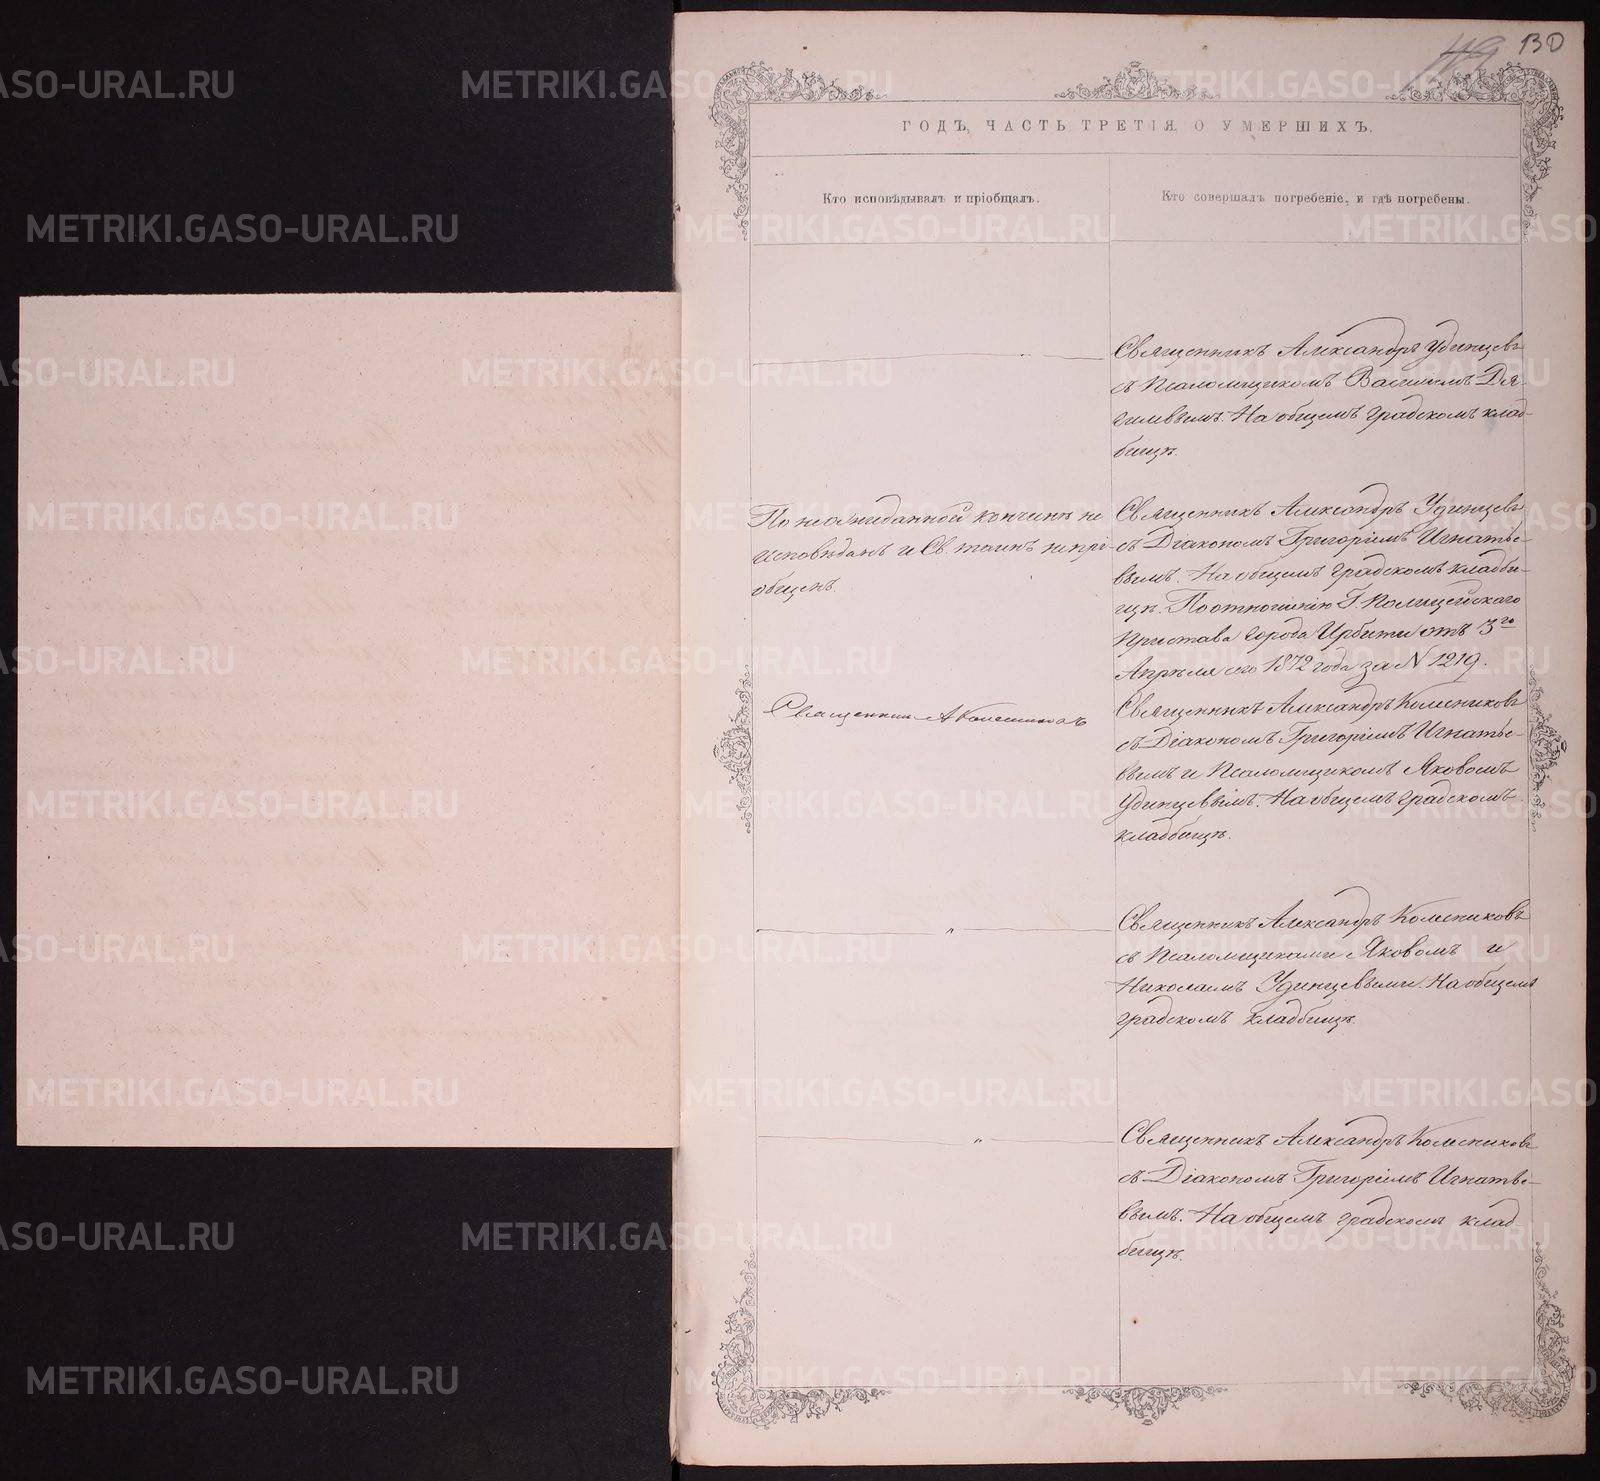 130
ГОДЪ, ЧАСТЬ ТРЕТІЯ, О УМЕРШИХЪ.
Кто исповѣдывалъ и пріобщалъ.
Кто совершалъ погребеніе, и гдѣ погребены.
Священникъ Александръ Удинцевъ
съ Псаломщикомъ Василіемъ Дя-
гилевымъ. На общемъ градскомъ клад-
бищѣ.
По неожиданной кончинѣ не
исповѣданъ и Св. таинъ не прі-
общенъ.
Священникъ Александръ Удинцевъ
съ Діакономъ Григоріемъ Игнатье-
вымъ. На общемъ градскомъ кладби-
щѣ. По отношенію Г. Полицейскаго
Пристава города Ирбити отъ 3го
Апрѣля сего 1872 года за N 1219.
Священникъ А Колесниковъ
Священникъ Александръ Колесниковъ
съ Діакономъ Григоріемъ Игнатье-
вымъ и Псаломщикомъ Яковомъ
Удинцевымъ. На общемъ градскомъ
кладбищѣ.
Священникъ Александръ Колесниковъ
съ Псаломщиками Яковомъ и
Николаемъ Удинцевыми. На общемъ
градскомъ кладбищѣ.
Священникъ Александръ Колесниковъ
съ Діакономъ Григоріемъ Игнатье-
вымъ. На общемъ градскомъ клад-
бищѣ.
METRIKI.GASO-URAL.RU